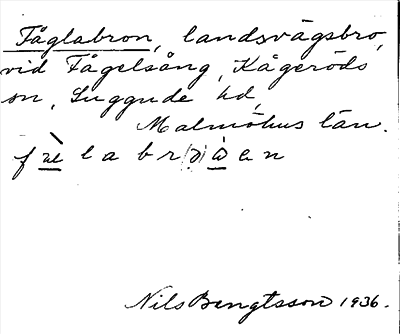 Fåglabron, landsvägsbro,
vid Fågelsång, Kågeröds
sn, Luggude hd,
Malmöhus län.
f æ̀ l a b r (ɔ) å̀ ə n
Nils Bengtsson 1936.